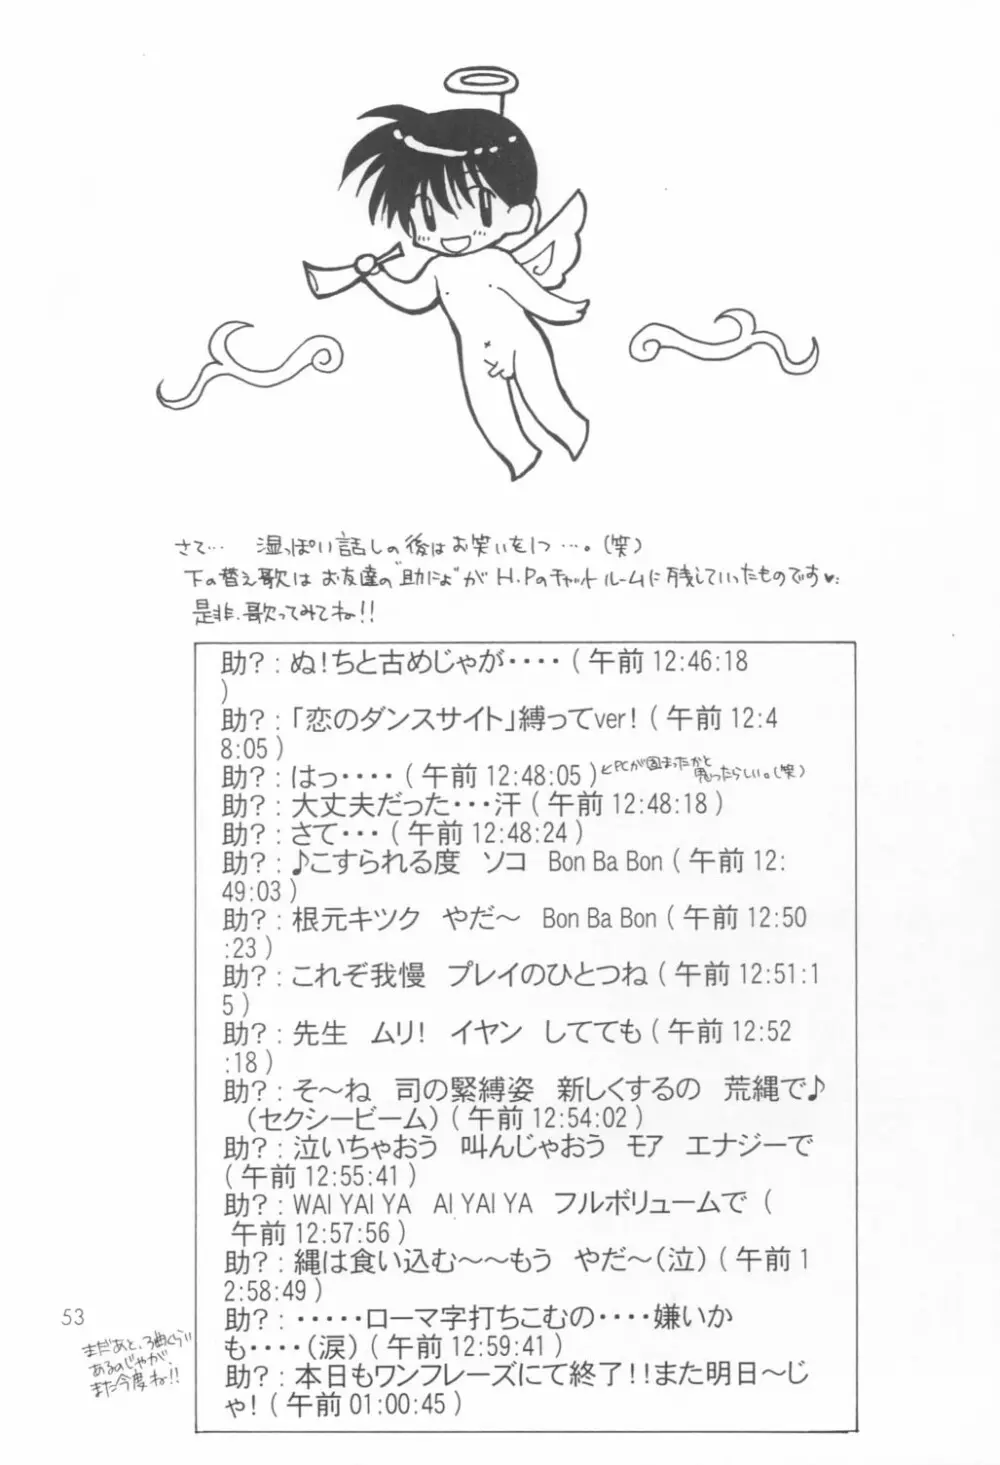 さて… 湿っぽい話しの後はお笑いを1つ…。(笑)
下の替え歌は お友達の"助によ"が H.Pのチャットルームに残していったものです♥
是非、歌ってみてね!!
助?:ぬ!ちと古めじゃが・・・・(午前12:46:18
)
助?:「恋のダンスサイト」縛ってver!(午前12:4
8:05)
助?:はっ・・・・(午前12:48:05) ←PCが固まったかと
思ったらしい。(笑)
助?:大丈夫だった・・・汗(午前12:48:18)
助?:さて・・・(午前12:48:24)
助?:♪こすられる度 ソコ Bon Ba Bon(午前12:
49:03)
助?:根元キツク やだ～ Bon Ba Bon(午前12:50
:23)
助?:これぞ我慢 プレイのひとつね(午前12:51:1
5)
助?:先生 ムリ! イヤン してても(午前12:52
:18)
助?:そ～ね 司の緊縛姿 新しくするの 荒縄で♪
(セクシービーム)(午前12:54:02)
助?:泣いちゃおう 叫んじゃおう モア エナジーで
(午前12:55:41)
助?:WAI YAI YA AI YAI YA フルボリュームで (
午前12:57:56)
助?:縄は食い込む～～もう やだ～(泣)(午前1
2:58:49)
助?:・・・・・ローマ字打ちこむの・・・・嫌いか
も・・・・(涙)(午前12:59:41)
助?:本日もワンフレーズにて終了!!また明日～じ
ゃ!(午前01:00:45)
53
まだあと、3曲くらい
あるのじゃが、
また今度ね!!